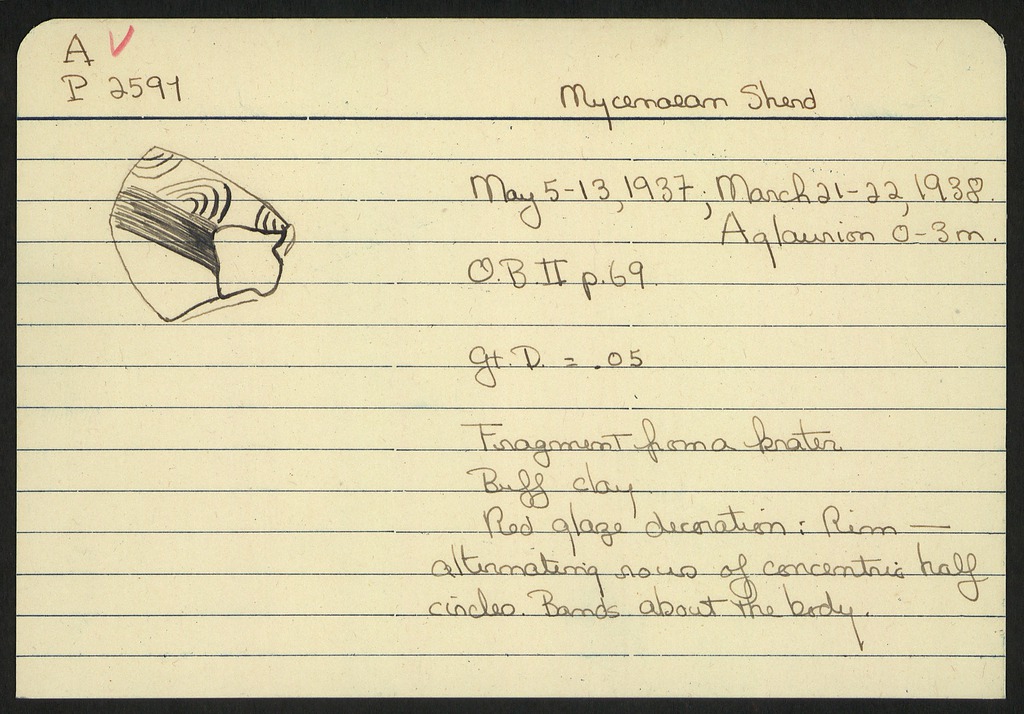 A ✓
P 2591
Mycenaean Sherd
May 5-13, 1937; March 21-22, 1938.
Aglaurion 0-3m.
O.B. II p.69.
Gt. D. = .05
Fragment from a krater
Buff clay
Red glaze decoration: Rim —
alternating rows of concentric half
circles. Bands about the body.